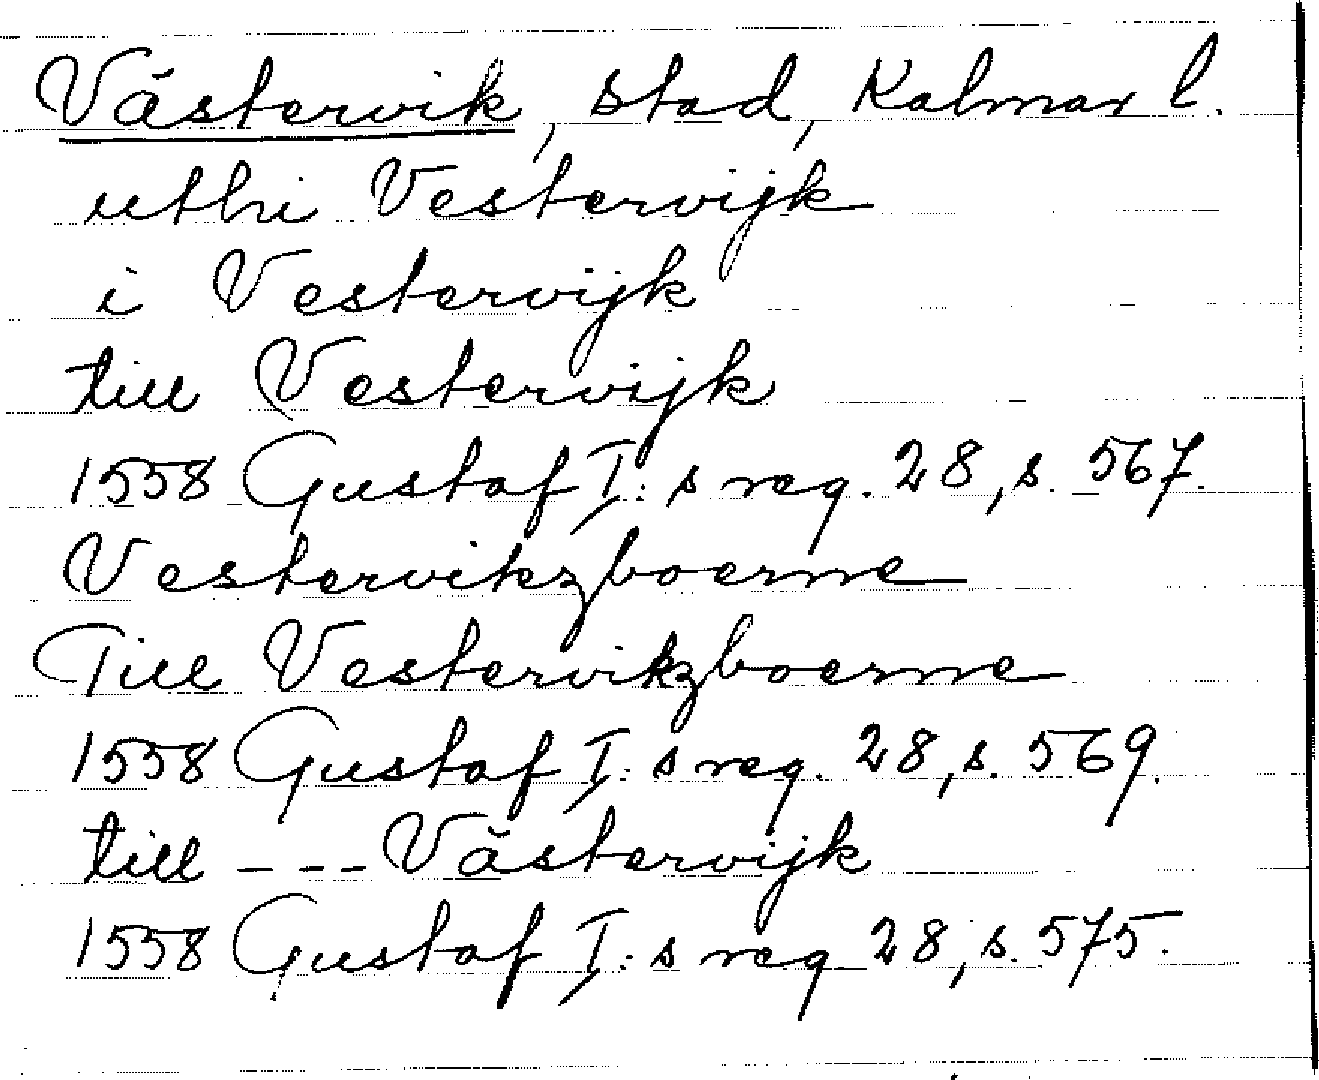 Västervik, stad, Kalmar l.
uthi Vestervijk
i Vestervijk
till Vestervijk
1558 Gustaf I:s reg. 28, s. 567.
Vestervikzboerne
Till Vestervikzboerne
1558 Gustaf I:s reg. 28, s. 569.
till --- Västervijk
1558 Gustaf I:s reg 28, s. 575.